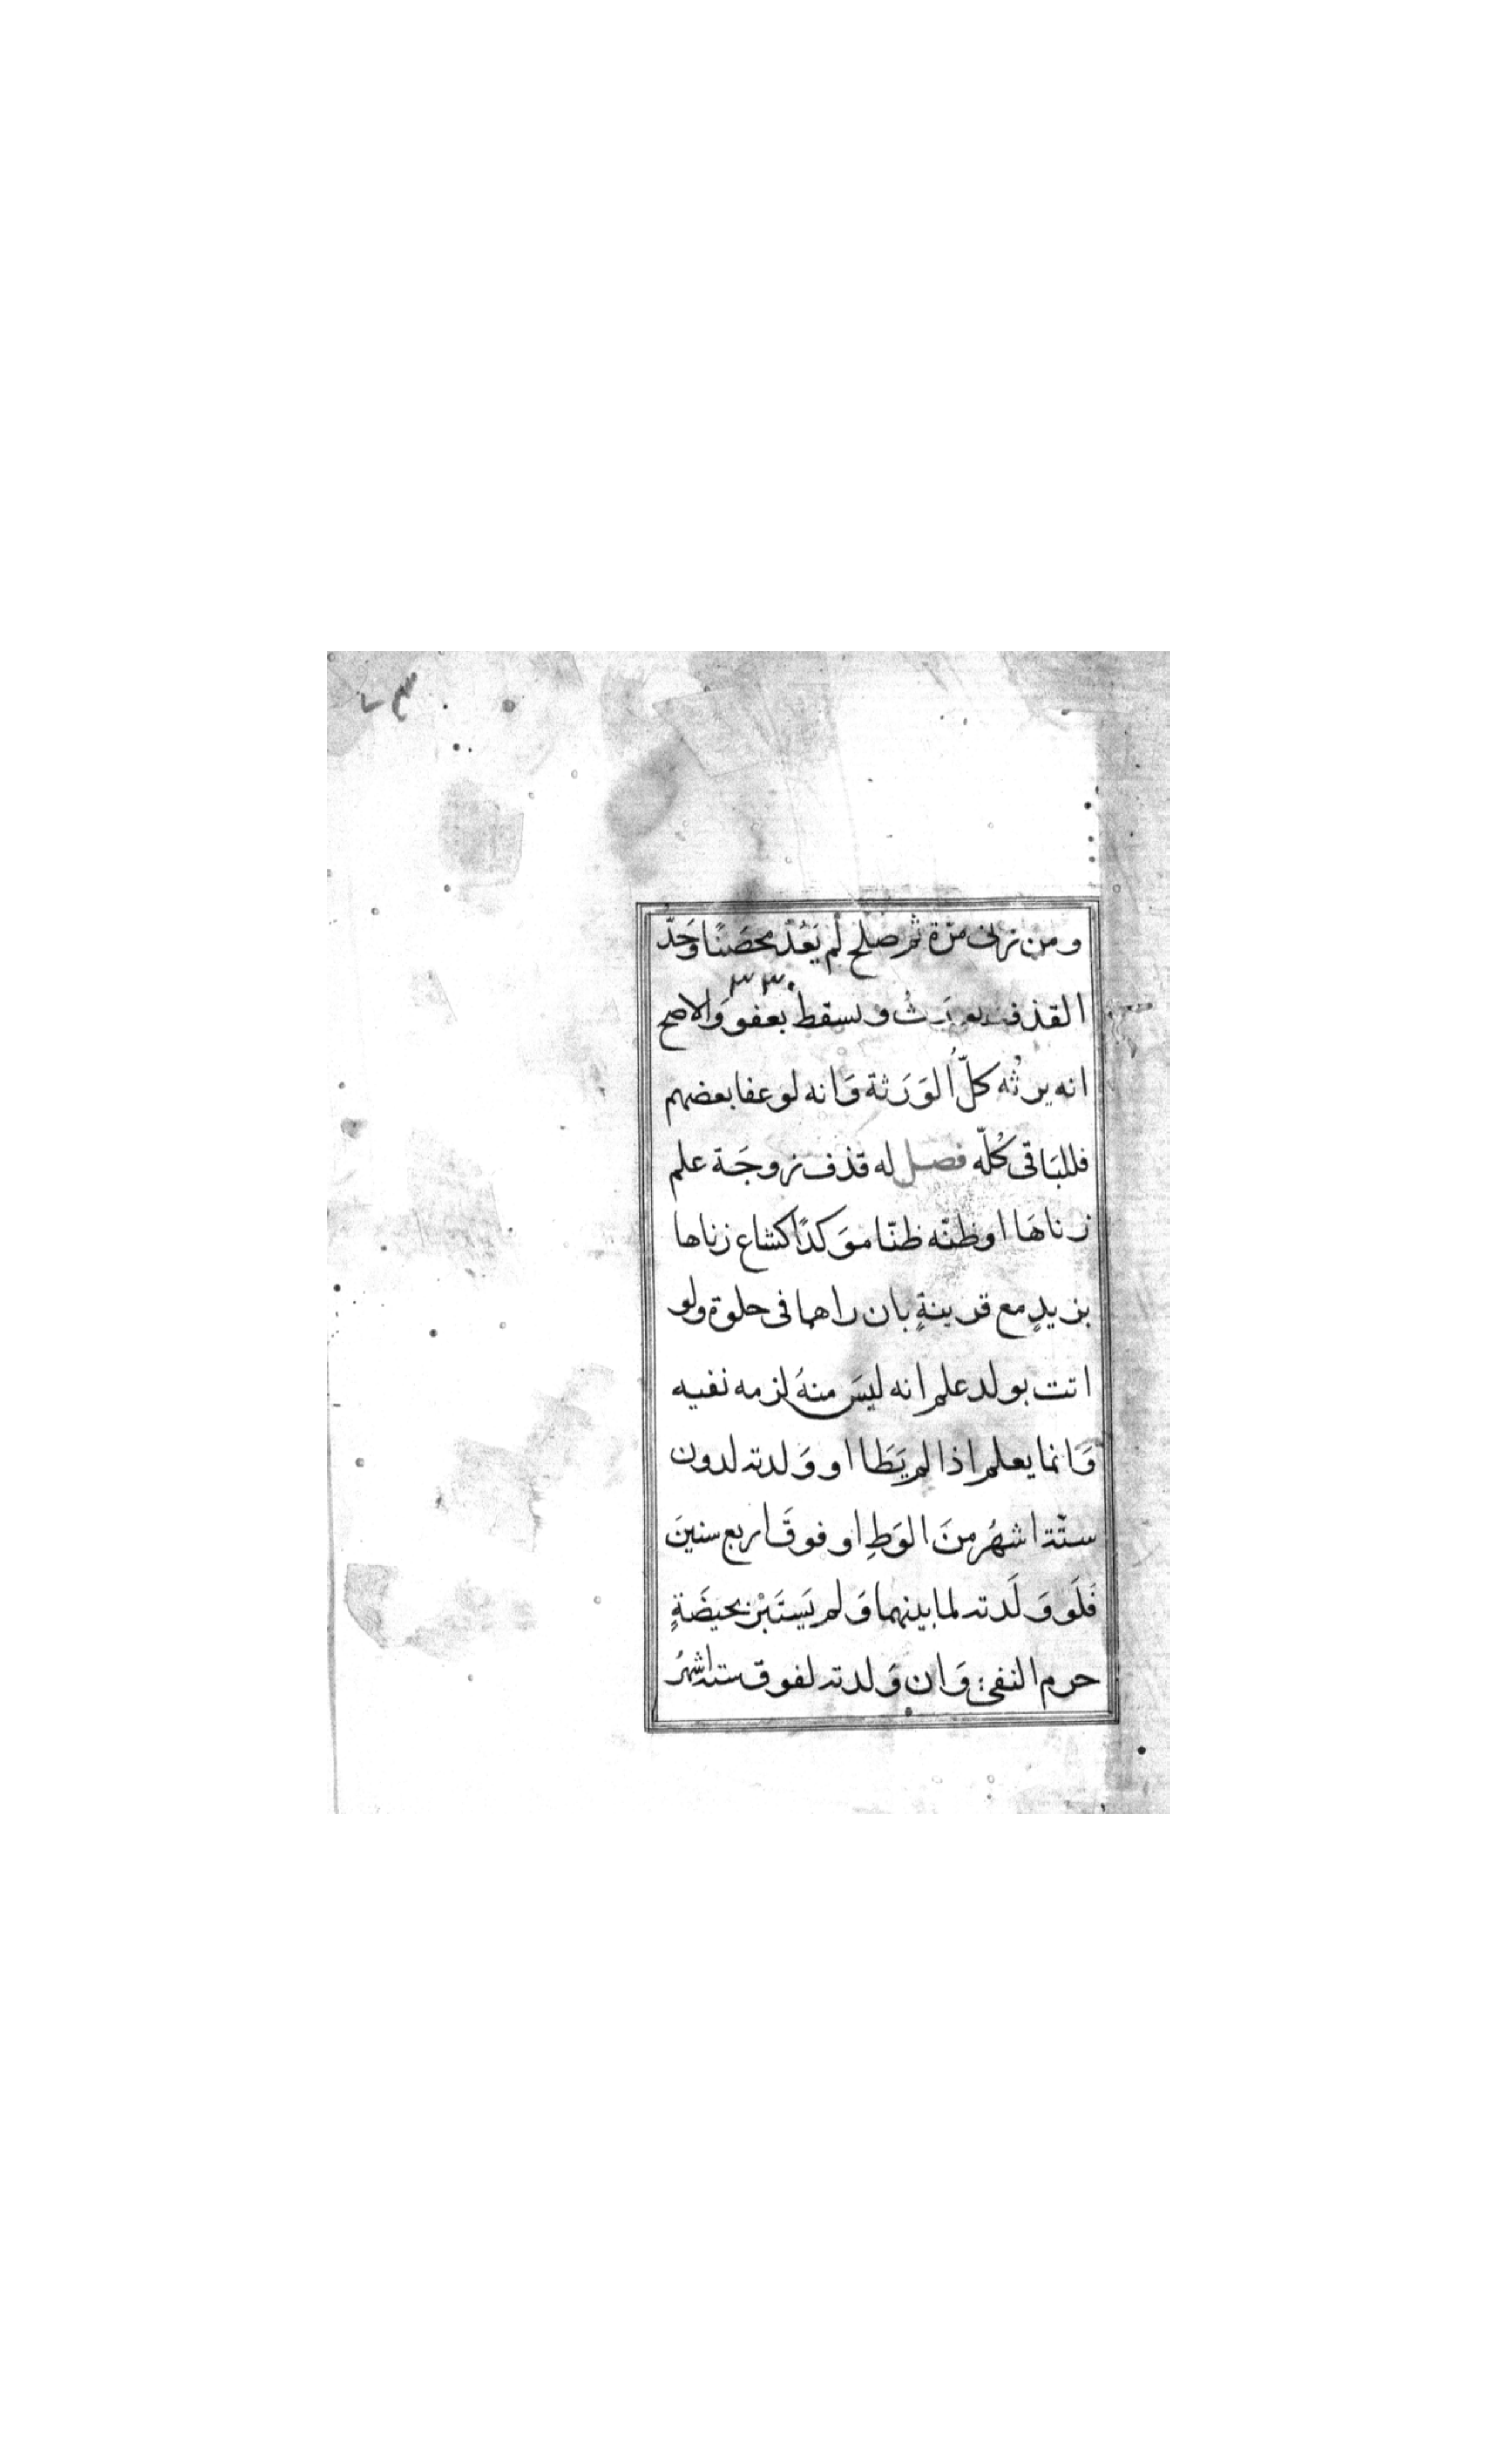 ومن زنى مرّة ثم صلح لم يَعُدْ محصَنًا وَحَدّ
القذف يورَث ويسقط بعفو وَالاصح
انه يرثُه كلّ الوَرَثة وَانه لو عفا بعضهم
فللبَاقى كُلّه فصل له قذف زوجَة علم
زناهَا او ظنّه ظنّا موَكدًا كشاع زناها
بزيدٍ مع قرينةٍ بان راهما فى خلوة ولو
اتت بولد علم انه ليسَ منهُ لزمه نفيه
وَانما يعلم اذا لم يَطَا او وَلدته لدون
ستّة اشهُر منَ الوَطِ او فوقَ اربع سنينَ
فَلَو وَلَدته لما بينهما وَلم يَستَبْرِ بحيضَةٍ
حرم النفى وَان وَلدته لفوق ستة اشهُر